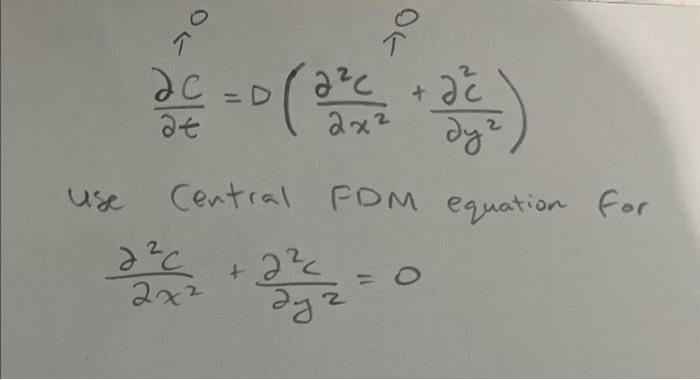 0 0
↑ ↑
∂C/∂t = D (∂²c/∂x² + ∂²c/∂y²)
use Central FDM equation for
∂²c/∂x² + ∂²c/∂y² = 0